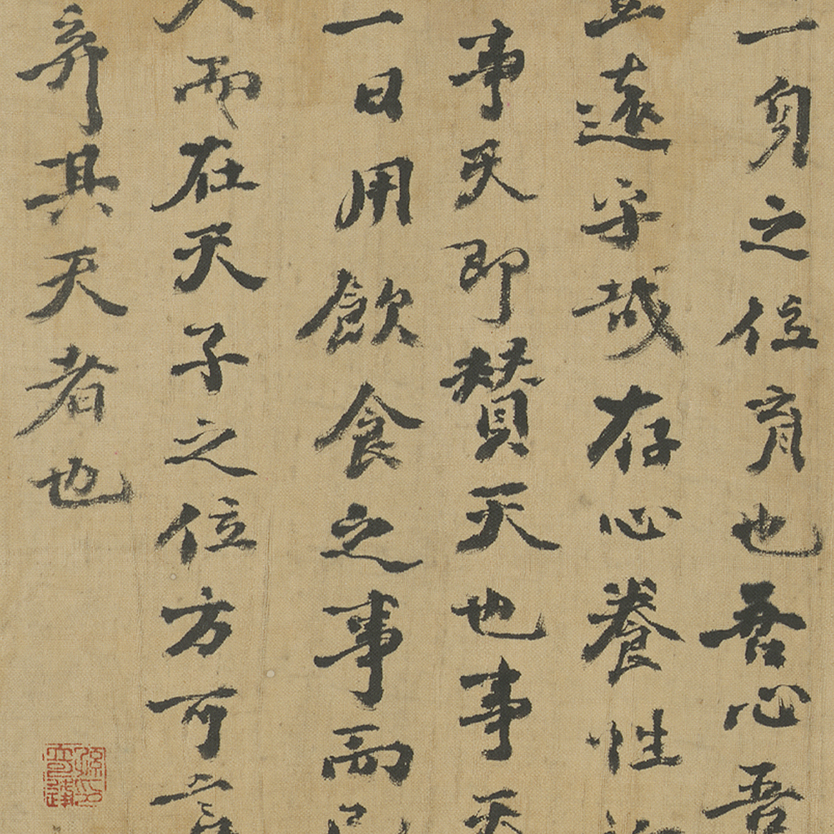 一身之位育也吾心吾
遠乎哉存心養性
事天即贊天也事天
一日用飲食之事而已
而在天子之位方可言
弃其天者也